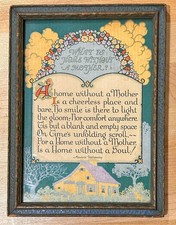 WHAT IS
HOME WITHOUT
A MOTHER?
A home without a Mother
Is a cheerless place and
bare, No smile is there to light
the gloom, Nor comfort anywhere
'Tis but a blank and empty space
On Time's unfolding scroll,--
For a Home without a Mother,
Is a Home without a Soul!